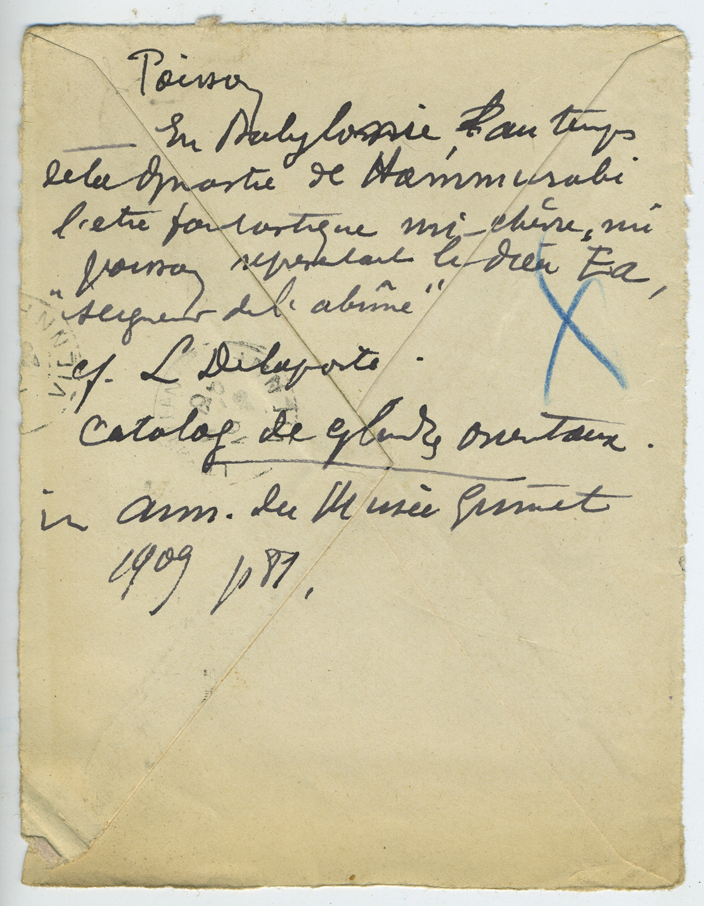 Poisson
En Babylonie, au temps
de la dynastie de Hammurabi
l'etre fantastique mi-chèvre, mi
poisson representant le dieu Ea,
"seigneur de l'abîme"
cf. L Delaporte.
Catalog de cylindres orientaux.
in ann. du Musée Guimet
1909 p 81,
VIENNE